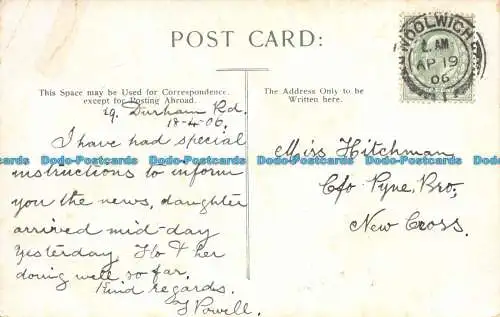 POST CARD:
WOOLWICH
AM
AP 19
06
This Space may be Used for Correspondence,
except for Posting Abroad.
The Address Only to be
Written here.
19. Durham Rd.
18-4-06.
I have had special
instructions to inform
you the news, daughter
arrived mid-day
yesterday Flo & her
doing well so far.
Kind regards.
Powell.
Miss Hitchman
C/o Pyne, Bro,
New Cross.
Dodo-Postcards Dodo-Postcards Dodo-Postcards